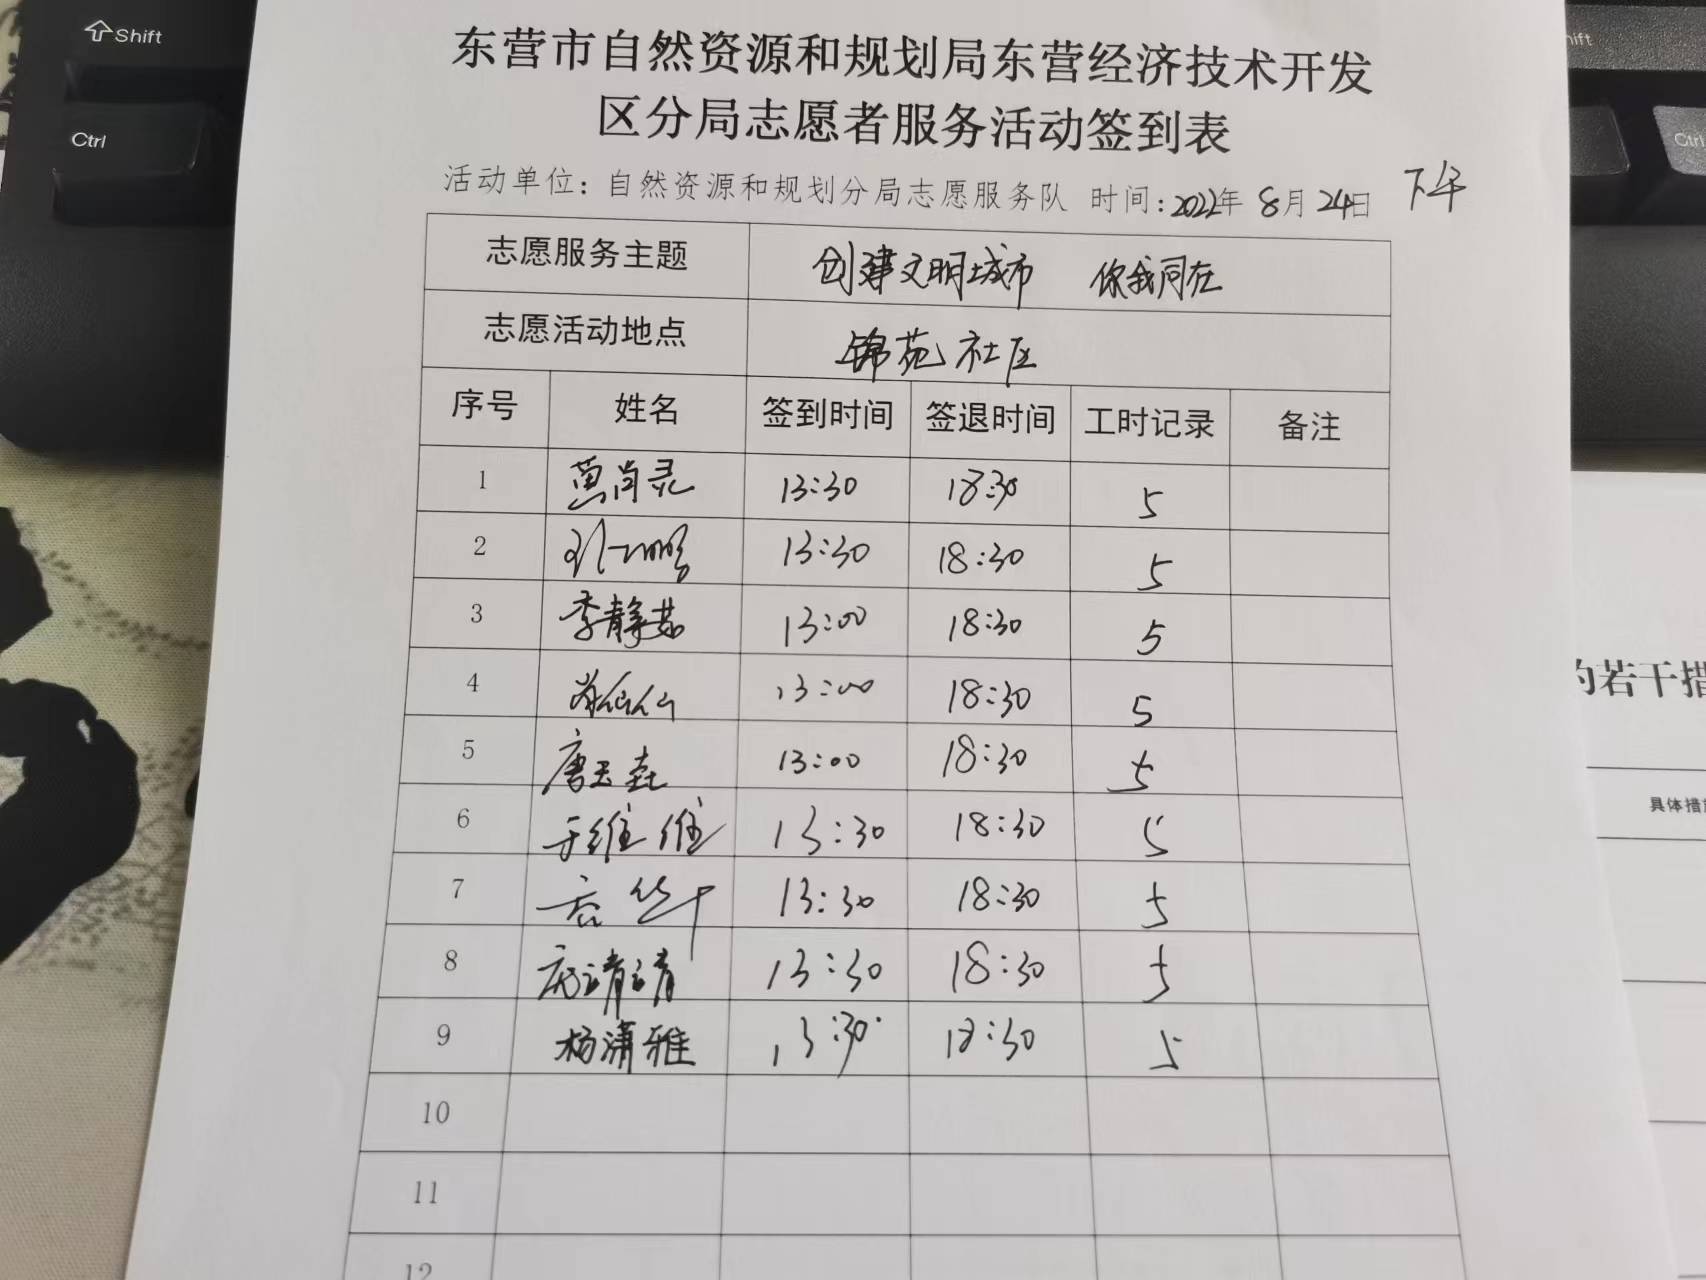 Shift
Ctrl
东营市自然资源和规划局东营经济技术开发
区分局志愿者服务活动签到表
活动单位：自然资源和规划分局志愿服务队 时间：2022年 8月 24日 下午
志愿服务主题 创建文明城市 你我同在
志愿活动地点 锦苑社区
序号 姓名 签到时间 签退时间 工时记录 备注
1 13:30 18:30 5
2 13:30 18:30 5
3 李静茹 13:00 18:30 5
4 13:00 18:30 5
5 唐玉垚 13:00 18:30 5
6 于维维 13:30 18:30 5
7 13:30 18:30 5
8 13:30 18:30 5
9 杨潇雅 13:30 18:30 5
10
11
12
hift
Ctrl
的若干措
具体措